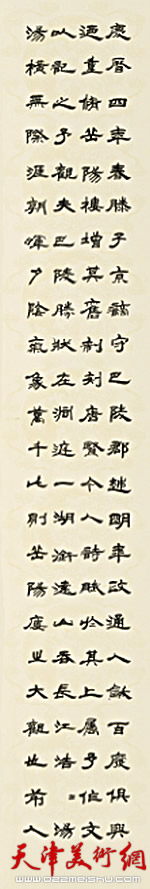 慶曆四年春滕子京謫守巴陵郡越明年政通人龢百廢俱興
迺重修岳陽樓增其舊制刻唐賢今人詩賦於其上屬予作文
以記之予觀夫巴陵勝狀在洞庭一湖銜遠山吞長江浩〻湯
湯橫無際涯朝暉夕陰氣象萬千此則岳陽廔之大觀也前人
天津美術網
www.022meishu.com